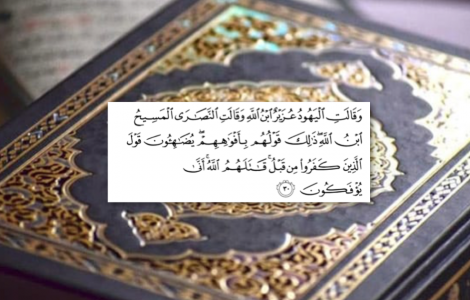 وَقَالَتِ ٱلۡيَهُودُ عُزَيۡرٌ ٱبۡنُ ٱللَّهِ وَقَالَتِ ٱلنَّصَٰرَى ٱلۡمَسِيحُ
ٱبۡنُ ٱللَّهِۖ ذَٰلِكَ قَوۡلُهُم بِأَفۡوَٰهِهِمۡۖ يُضَٰهِـُٔونَ قَوۡلَ
ٱلَّذِينَ كَفَرُواْ مِن قَبۡلُۚ قَٰتَلَهُمُ ٱللَّهُۖ أَنَّىٰ
يُؤۡفَكُونَ ٣٠